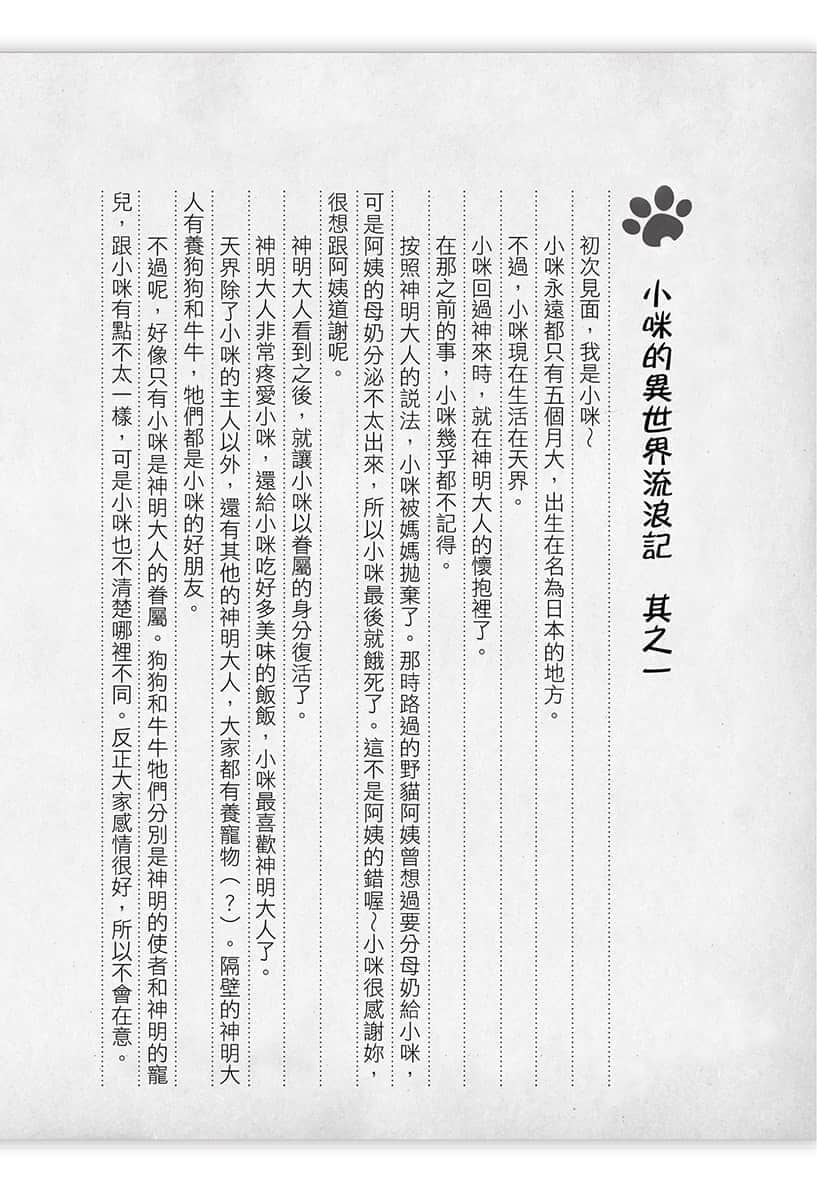 小咪的異世界流浪記　其之一
初次見面，我是小咪～
小咪永遠都只有五個月大，出生在名為日本的地方。
不過，小咪現在生活在天界。
小咪回過神來時，就在神明大人的懷抱裡了。
在那之前的事，小咪幾乎都不記得。
按照神明大人的說法，小咪被媽媽拋棄了。那時路過的野貓阿姨曾想過要分母奶給小咪，
可是阿姨的母奶分泌不太出來，所以小咪最後就餓死了。這不是阿姨的錯喔～小咪很感謝妳，
很想跟阿姨道謝呢。
神明大人看到之後，就讓小咪以眷屬的身分復活了。
神明大人非常疼愛小咪，還給小咪吃好多美味的飯飯，小咪最喜歡神明大人了。
天界除了小咪的主人以外，還有其他的神明大人，大家都有養寵物（？）。隔壁的神明大
人有養狗狗和牛牛，牠們都是小咪的好朋友。
不過呢，好像只有小咪是神明大人的眷屬。狗狗和牛牛牠們分別是神明的使者和神明的寵
兒，跟小咪有點不太一樣，可是小咪也不清楚哪裡不同。反正大家感情很好，所以不會在意。